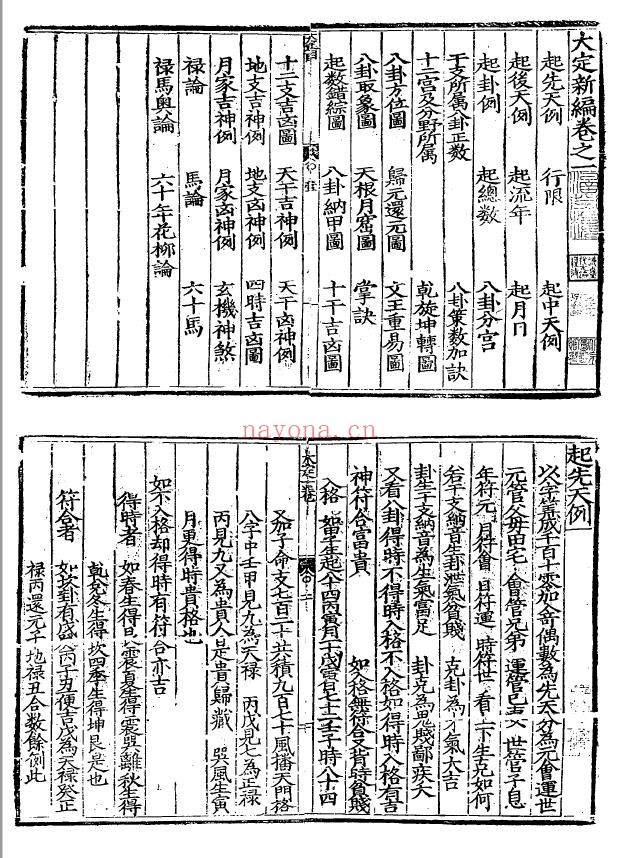 大定新編卷之一
起先天例 行限 起中天例
起後天例 起流年 起月日
起卦例 起總數 八卦分宮
干支所属八卦正數 八卦策数加訣
十二宮及分野所属 乾旋坤轉圖
八卦方位圖 歸元還元圖 文王重易圖
八卦取象圖 天根月窟圖 掌訣
起数錯綜圖 八卦納甲圖 十干吉凶圖
十二支吉凶圖 天干吉神例 天干凶神例
地支吉神例 地支凶神例 四時吉凶圖
月家吉神例 月家凶神例 玄機神煞
禄論 馬論 六十馬
禄馬輿論 六十年花柳論
nayona.cn
起先天例
以年算成千百十零加入奇偶數為先天分為元會運世
元管父母田宅 會管兄弟 運管己 世管子息
年符元 月符會 日符運 時符世 看上下生克如何
若干支納音生卦泄氣貧賤 克卦為 氣大吉
卦生干支納音為生氣富足 卦克為鬼賤鄙疾夭
又看八卦得時不得時入格不入格如得時入格有吉
神符合富貴 如入格無符合又背時貧賤
入格 如甲子生起八十四丙寅月 十戊寅日 十二壬子時八十四
又加子命支七百二十共積九百七十風播天門格
八字中壬甲見九為天禄 丙戊見七為正禄
丙見九又為貴人是貴歸藏 巽風生寅
月更得時貴格也
如不入格却得時有符合亦吉
得時者 如春生得 震夏生得震巽離秋生得
乾兌冬生得坎四季生得坤艮是也
符合者 如坎卦有 丙丁丑便吉戊為天禄癸正
禄丙還元干 地禄丑合数餘倒此